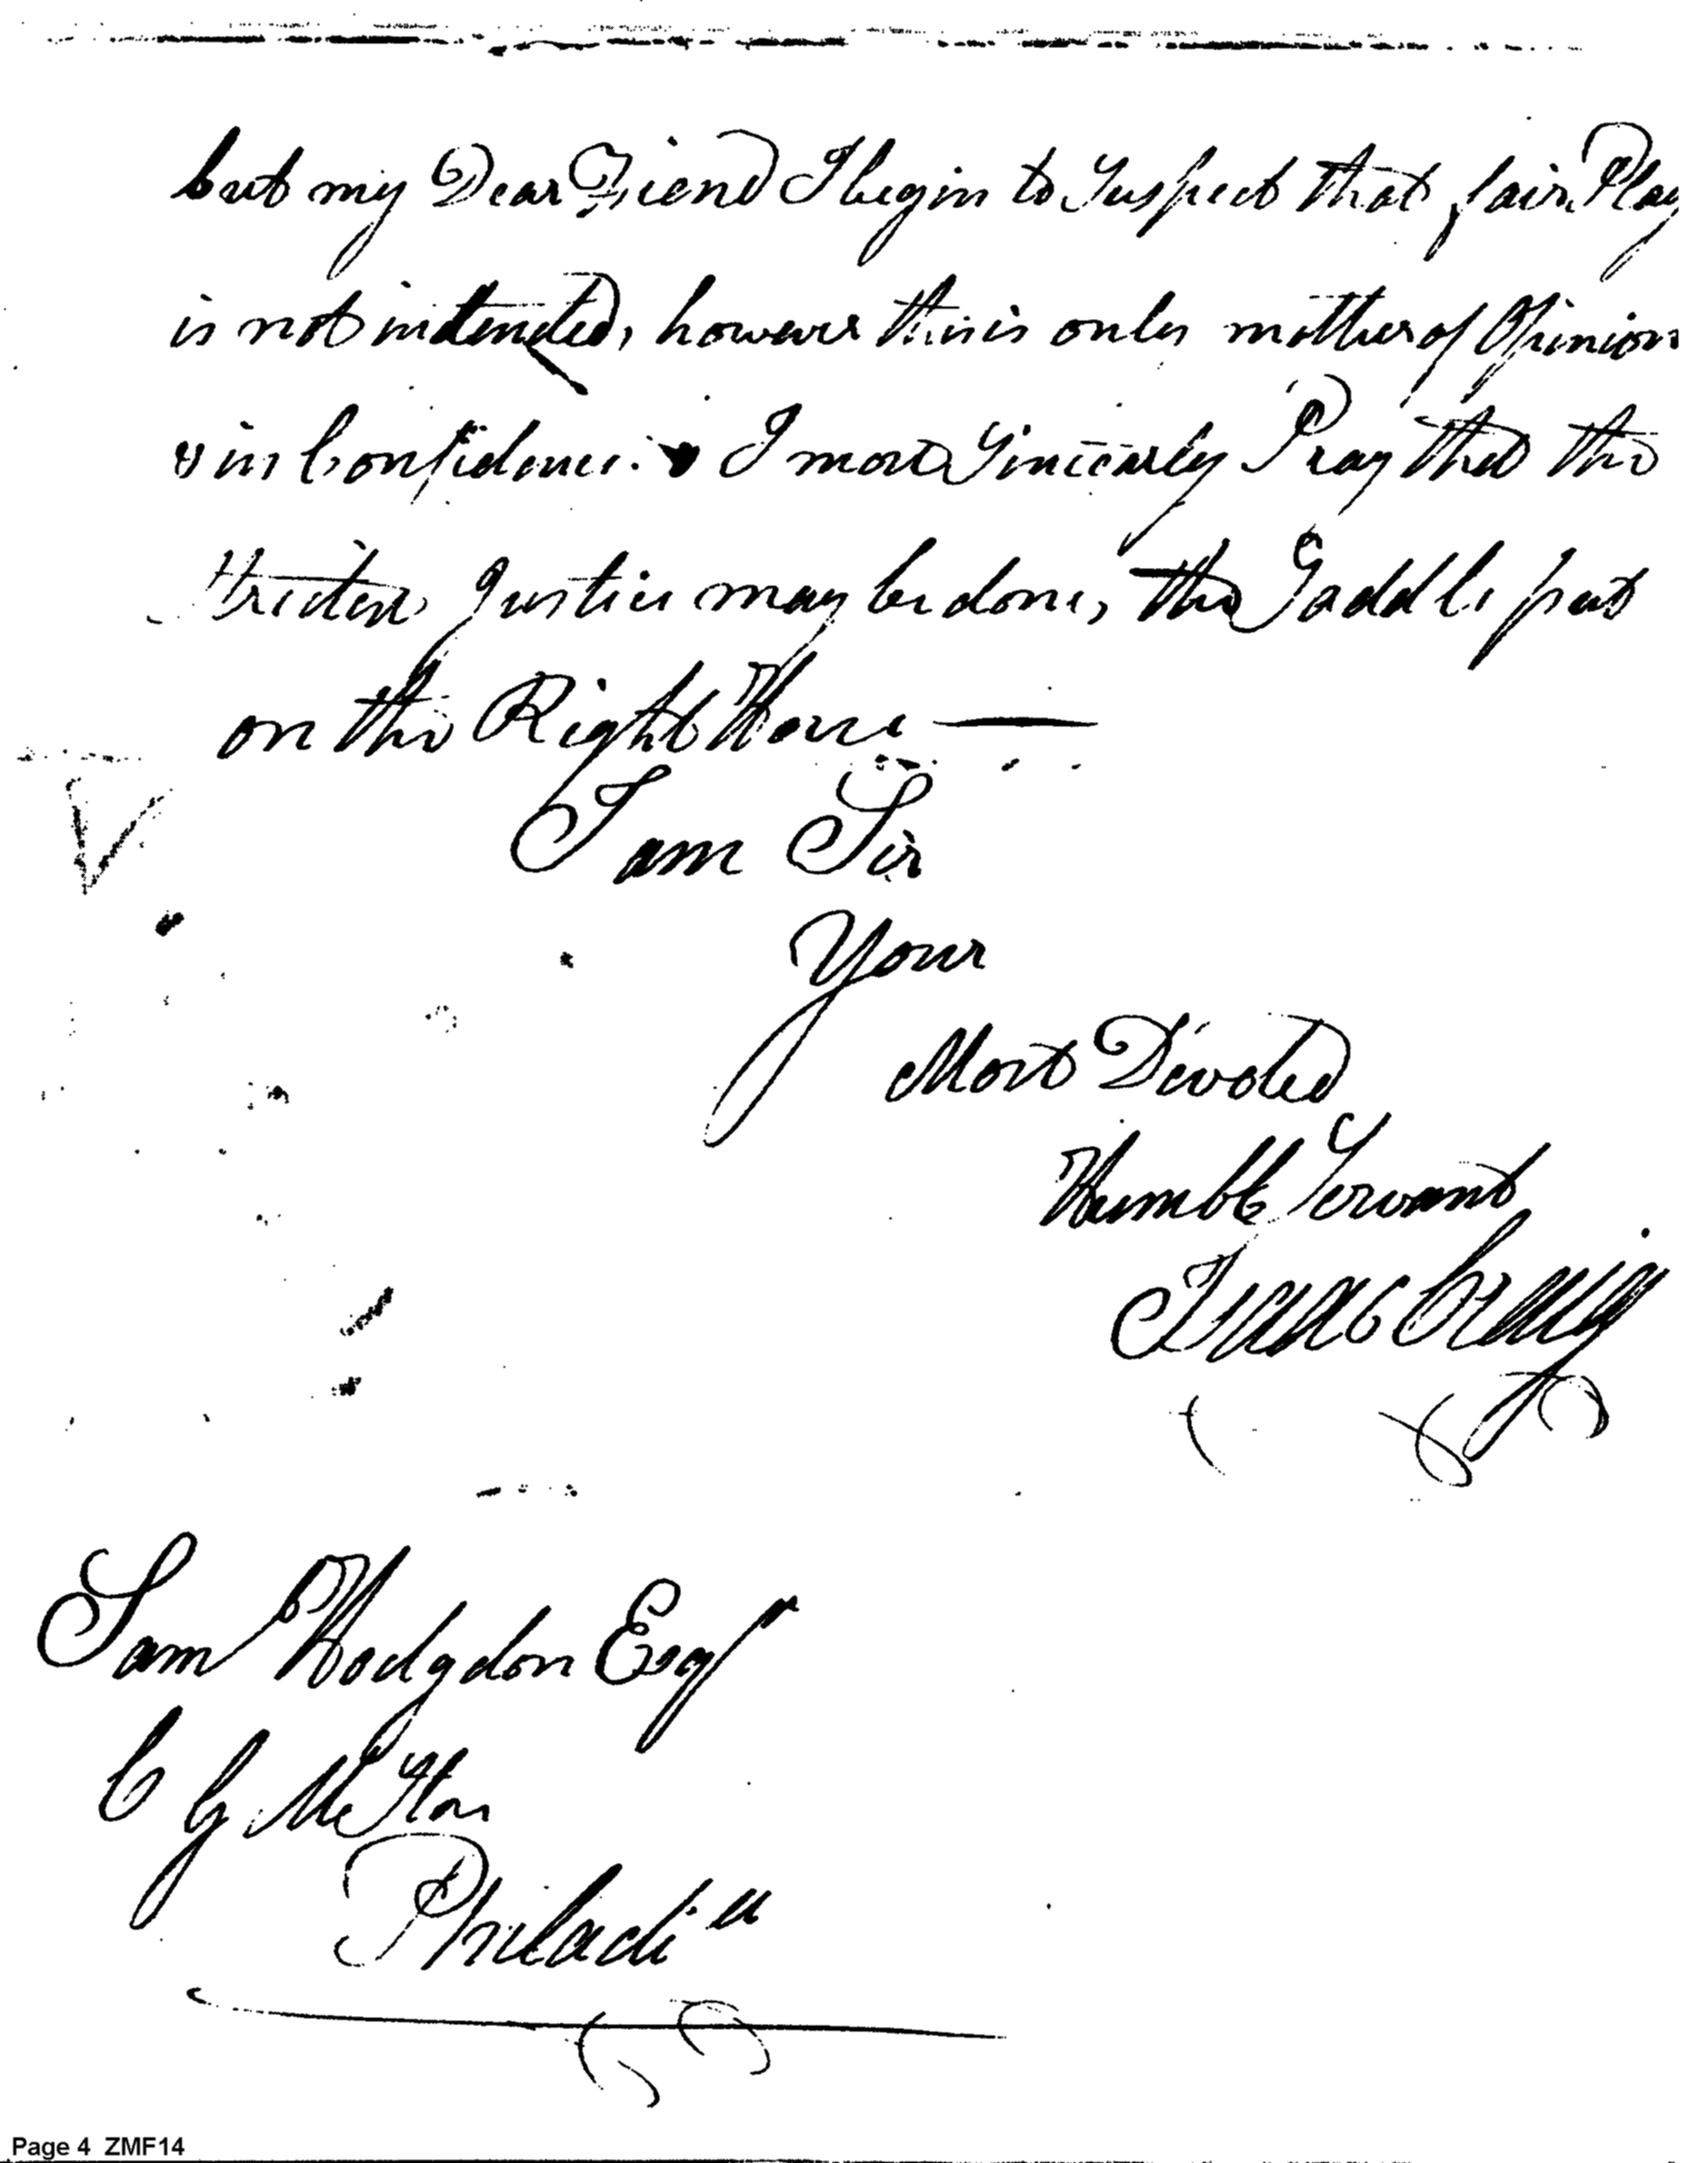 but my Dear Friend I begin to Suspect that fair Play
is not intended, however this is only matter of Opinion
& in Confidence. I most Sincearly Pray that the
strictest Justice may be done, the Saddle put
on the Right Horse —
I am Sir
Your
Most Devoted
Humble Servant
Isaac Craig
Saml Hodgdon Esqr
C G M Stor
Philadᵃ
Page 4 ZMF14